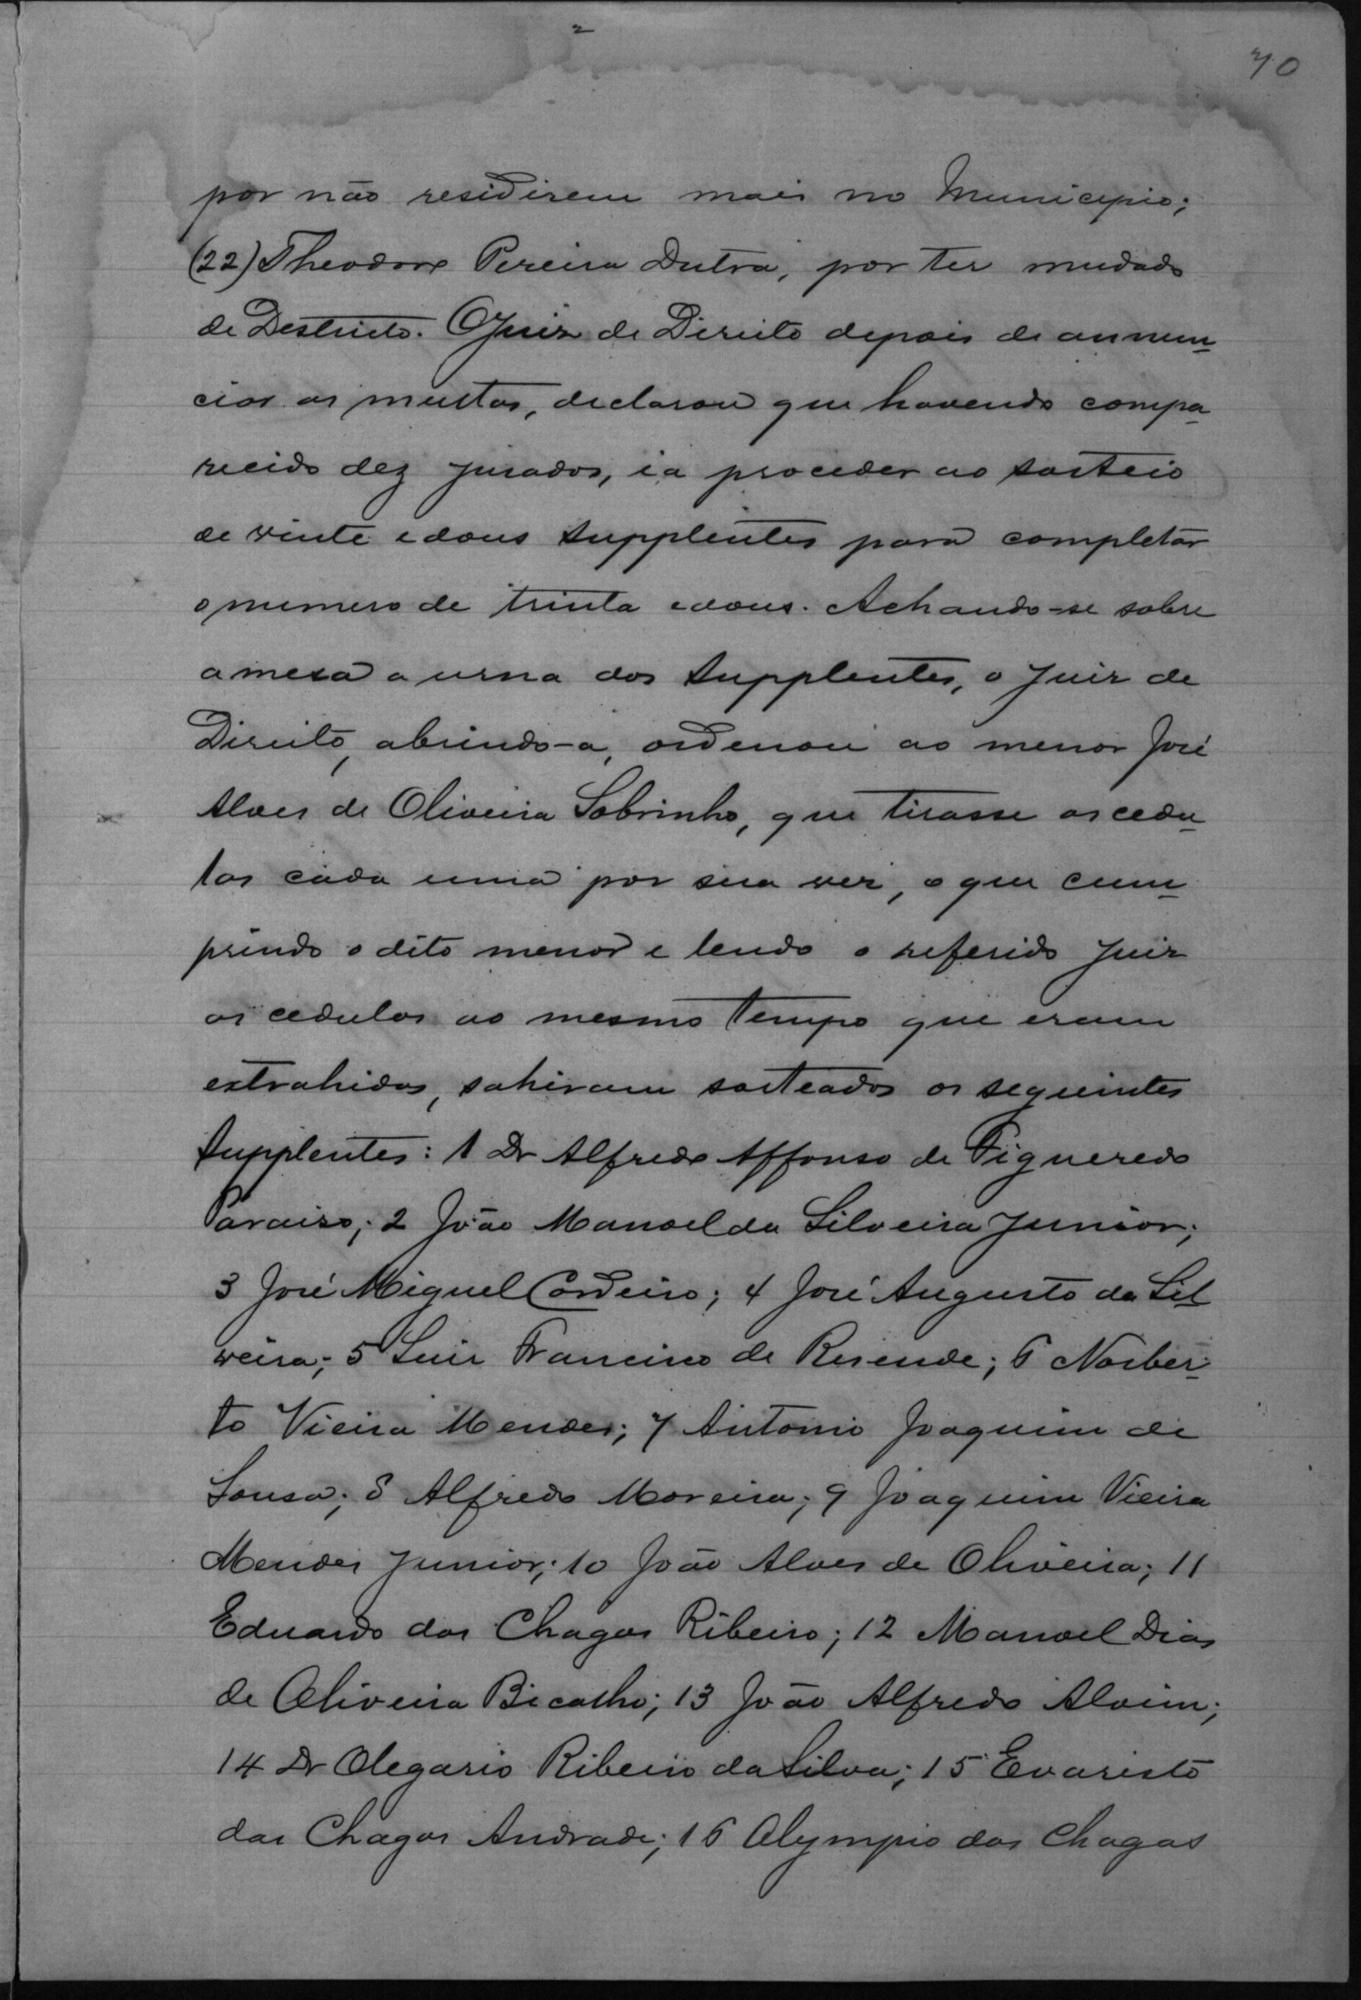 70
por não residirem mais no Municipio;
(22) Theodoro Pereira Dutra, por ter mudado
de Destricto. O Juiz de Direito depois de annun-
ciar as multas, declarou que havendo compa-
recido dez jurados, ia proceder ao sorteio
de vinte e dous supplentes para completar
o numero de trinta e dous. Achando-se sobre
a mesa a urna dos supplentes, o Juiz de
Direito, abrindo-a, ordenou ao menor José
Alves de Oliveira Sobrinho, que tirasse as cedu-
las cada uma por sua vez, o que cum-
prindo o dito menor e lendo o referido Juiz
as cedulas ao mesmo tempo que eram
extrahidas, sahiram sorteados os seguintes
supplentes: 1 Dr Alfredo Affonso de Figueredo
Paraizo; 2 João Manoel da Silveira Junior;
3 José Miguel Cordeiro; 4 José Augusto da Sil-
veira; 5 Luiz Francisco de Resende; 6 Norber-
to Vieira Mendes; 7 Antonio Joaquim de
Sousa; 8 Alfredo Moreira; 9 Joaquim Vieira
Mendes Junior; 10 João Alves de Oliveira; 11
Eduardo das Chagas Ribeiro; 12 Manoel Dias
de Oliveira Bicalho; 13 João Alfredo Alvim;
14 Dr Olegario Ribeiro da Silva; 15 Evaristo
das Chagas Andrade; 16 Olympio das Chagas